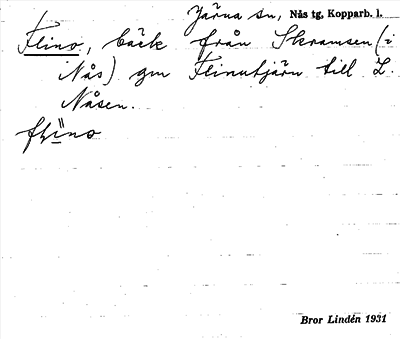 Järna sn, Nås tg, Kopparb. l.
Flino, bäck från Skramsen (i
Nås) gm Flinutjärn till L.
Nåsen.
Bror Lindén 1931